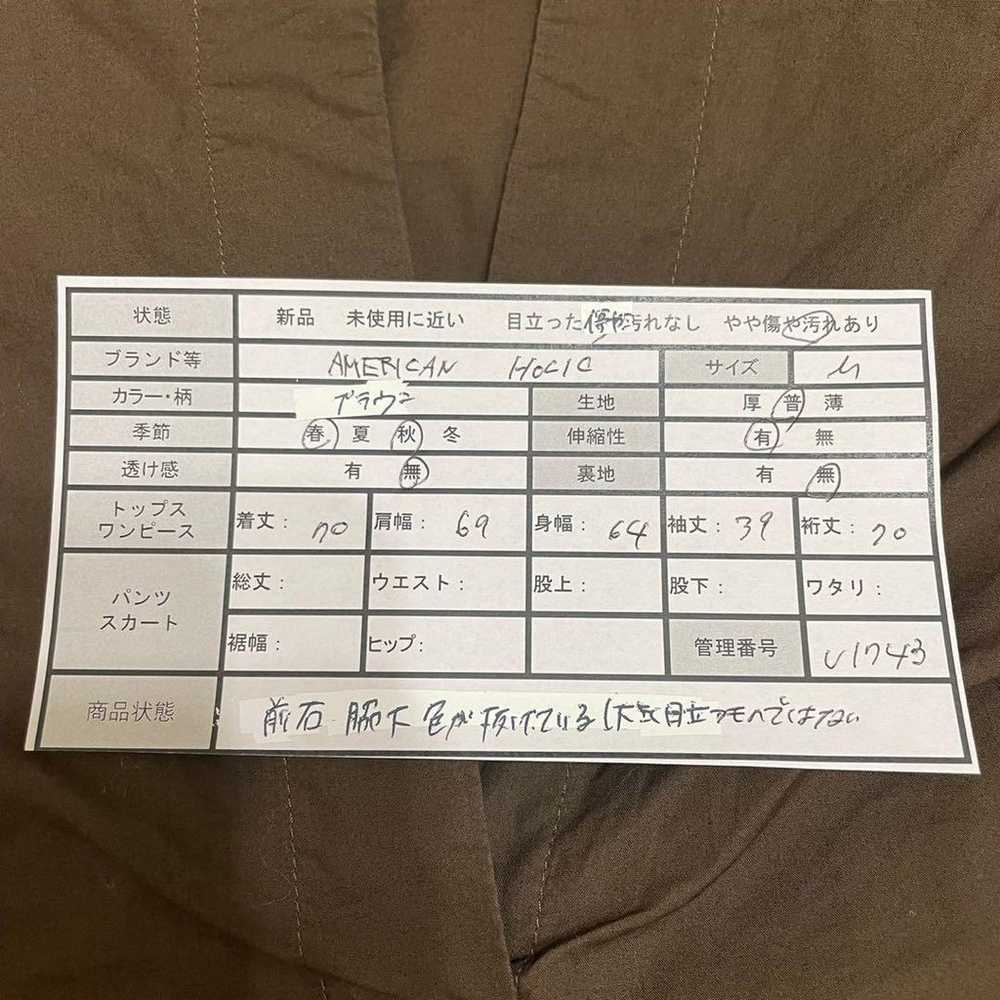 状態 新品 未使用に近い 目立った傷や汚れなし やや傷や汚れあり
ブランド等 AMERICAN HOLIC サイズ M
カラー・柄 ブラウン 生地 厚 普 薄
季節 春 夏 秋 冬 伸縮性 有 無
透け感 有 無 裏地 有 無
トップス
ワンピース
着丈： 70 肩幅： 69 身幅： 64 袖丈： 39 裄丈： 70
パンツ
スカート
総丈： ウエスト： 股上： 股下： ワタリ：
裾幅： ヒップ： 管理番号 U1743
商品状態 前右 脇下 色が抜けている 目立つモノではない